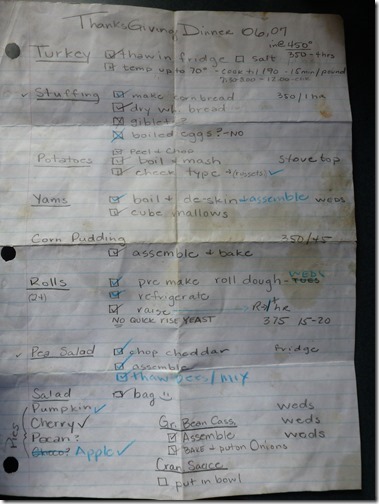 ThanksGiving Dinner 06,07
Turkey thaw in fridge salt 350-4hrs
temp up to 70° - cook til 190 - 15min/pound
Stuffing make cornbread 350/1 hr
dry wht bread
giblets?
boiled eggs? - NO
Peel & Chop
Potatoes boil & mash Stove top
check type & (russets)
Yams boil & de-skin & assemble weds
cube mallows
Corn Pudding 350/45
assemble & bake
Rolls pre make roll dough - weds
(24) refrigerate
raise
NO QUICK RISE YEAST 375 15-20
Pea Salad chop cheddar fridge
assemble
thaw peas / mix
Salad bag
Pies
Pumpkin
Cherry
Pecan?
Choco? Apple
Gr. Bean Cass. weds
Assemble weds
BAKE & put on Onions weds
Cran Sauce
put in bowl